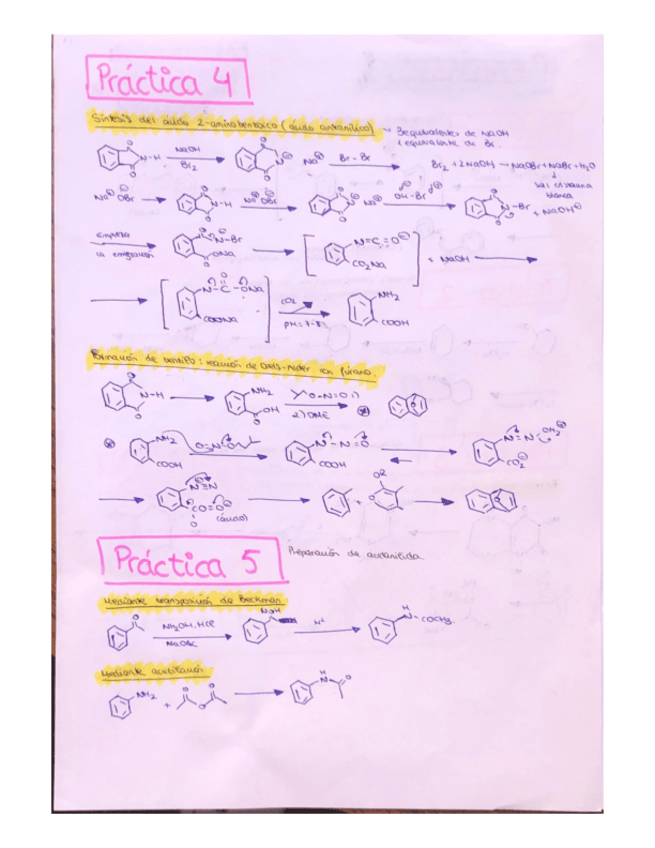 Práctica 4
Síntesis del ácido 2-aminobenzoico (ácido antranílico) → 8equivalentes de NaOH
1 equivalente de Br.
N-H NaOH Br2 N⊖ Na⊕ Br-Br Br2 + 2NaOH → NaOBr + NaBr + H2O
sal
blanca
Na⊕ ⊖OBr → N-H Na⊕ ⊖OBr N⊖ Na⊕ OH-Br N-Br + NaOH
empieza
la migración
N-Br ONa N=C=O CO2Na + NaOH
N-C-ONa COONa CO2 pH=7-8 NH2 COOH
Formación de bencino: reacción de Diels-Alder con furano.
N-H NH2 OH O-N=O 1) 2) DME
NH2 COOH O=N-O N-N=O COOH N=N-OH2 CO2⊖
N≡N CO=O OR
Práctica 5 Preparación de acetanilida
Mediante transposición de Beckman
O NH2OH, HCl NaOAc NOH H+ H N-COCH3
Mediante acetilación
NH2 + O O O H N O